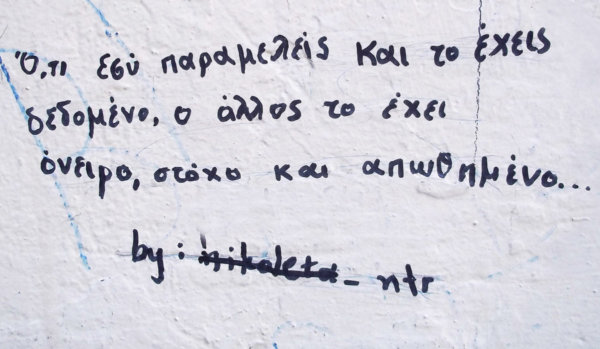 Ό,τι εσύ παραμελείς και το έχεις
δεδομένο, ο άλλος το έχει
όνειρο, στόχο και απωθημένο...
by: nikoleta_ ntr